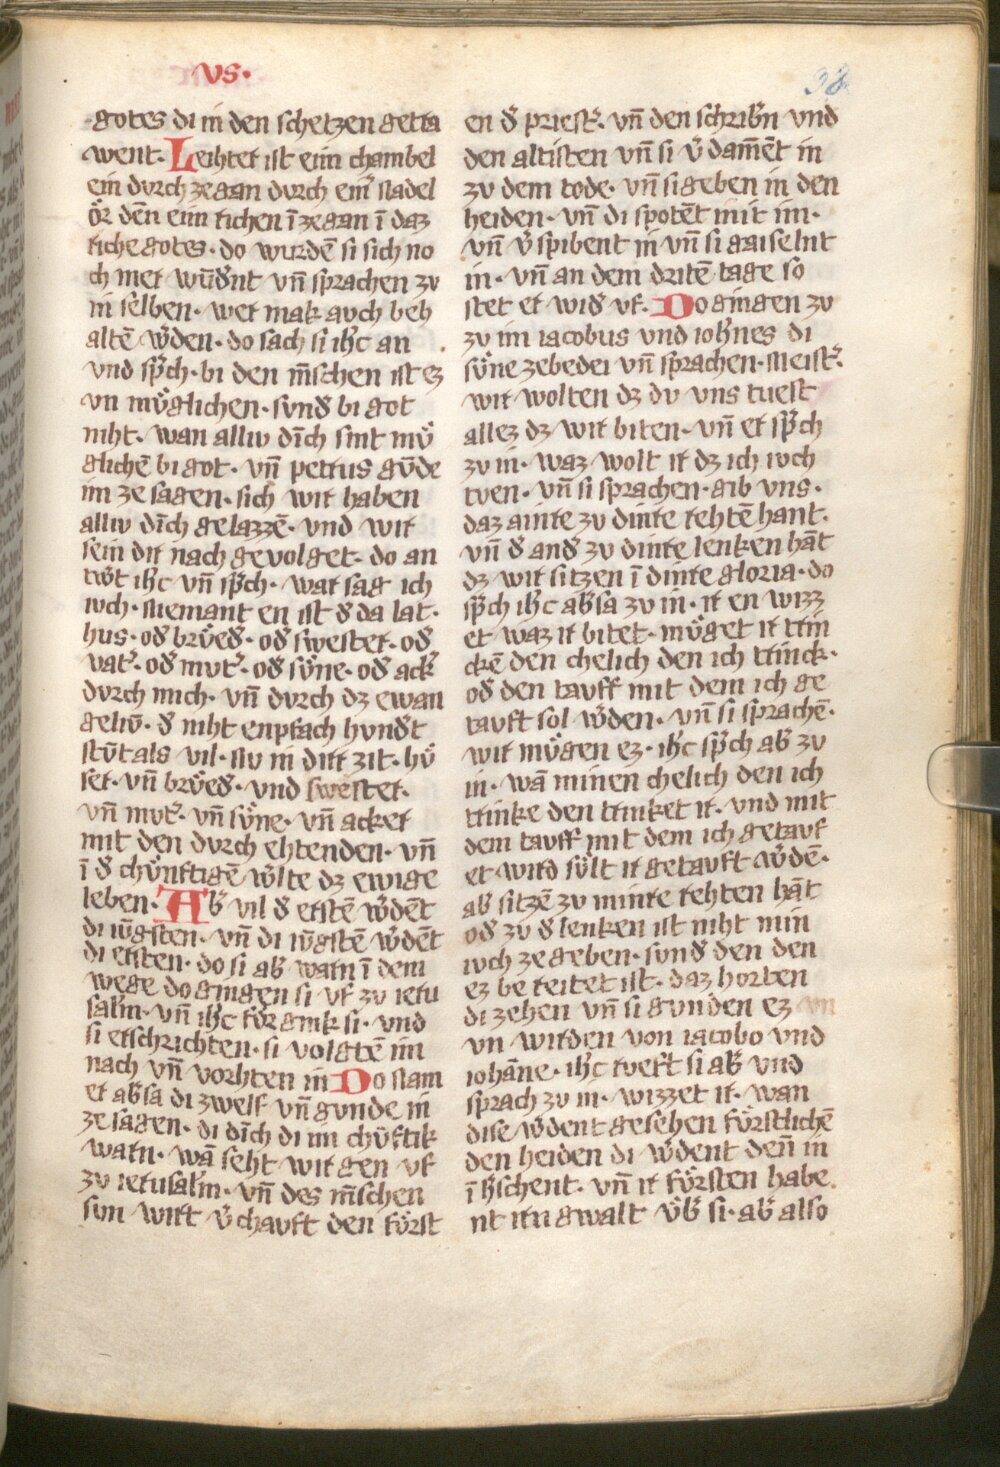 vs.
38
gotes di in den schetzen getra
went. Leihter ist eim chambel
ein durch ze gan durch einͬ nadel
ôr dēn eim richen ī ze gan ī daz
riche gotes. do wurdē si sich no
ch mer wūdͬnt vn̄ sprachen zv
in selben. wer mak avch beh
altē wͬden. do sach si ihc̄ an
vnd spͬch. bi den m̄schen ist ez
vn mvͦglichen. svndͬ bi got
niht. wan alliv dīch sint mvͦ
glichē bi got. vn̄ petrus gv̄de
im ze sagen. sich wir haben
alliv dīch gelazzē. vnd wir
sein dir nach gevolget. do an
twͬt ihc̄ vn̄ spͬch. war sag ich
ivch. niemant en ist dͬ da lat.
hus. odͬ brvͦedͬ. odͬ swester. odͬ
vatͬ. odͬ mvtͬ. odͬ svͦne. odͬ ackͬ
dvrch mich. vn̄ dvrch dz ewan
geliv̄. dͬ niht enpfach hvndͬt
stv̄t als vil. nv in dirr zit. hvͦ
ser. vn̄ brvͦedͬ. vnd swester.
vn̄ mvtͬ. vn̄ svͦne. vn̄ acker
mit den dvrch ehtenden. vn̄
ī dͬ chvͦnftigē wͬlte dz ewige
leben. Abͬ vil dͬ erstē wͬdēt
di ivͦgsten. vn̄ di ivͦgstē wͬdēt
di ersten. do si abͬ warn ī dem
wege do gingen si vf zv ieru
salm̄. vn̄ ihc̄ fvͦr gink si. vnd
si erschrichten. si volgtē im
nach vn̄ vorhten in Do nam
er abͬ sa di zwelf vn̄ gvnde in
ze sagen. di dīch di im chv̄ftik
warn. wā seht wir gen vf
zv ierusalm̄. vn̄ des m̄schen
svn wirt vͬchavft den fvͦrst
en dͬ priestͬ. vn̄ den schribͬn vnd
den altisten vn̄ si vͬdam̄ēt in
zv dem tode. vn̄ si geben in den
heiden. vn̄ di spotēt mit im.
vn̄ vͬspibent in vn̄ si gaiselnt
in. vn̄ an dem dritē tage so
stet er widͬ vf. Do gingen zv
zv im iacobus vnd iohͬnes di
svͦne zebedei vn̄ sprachen. Meistͬ.
wir wolten dz dv vns tuest
allez dz wir biten. vn̄ er spͬch
zv in. waz wolt ir dz ich ivch
tven. vn̄ si sprachen. gib vns.
daz ainre zv dinre rehtē hant.
vn̄ dͬ andͬ zv dinre lenken hāt
dz wir sitzen ī dinre gloria. do
spͬch ihc̄ abͬ sa zv in. ir en wizz
et waz ir bitet. mvͦget ir trin
ckē den chelich den ich trinck.
odͬ den tavff mit dem ich ge
tavft sol wͬden. vn̄ si sprachē.
wir mvͦgen ez. ihc̄ spͬch abͬ zv
in. wā minen chelich den ich
trinke den trinket ir. vnd mit
dem tavff mit dem ich getavf
et wird svͦlt ir getavft wͬdē.
abͬ sitzē zv minre rehten hāt
odͬ zv dͬ lenken ist niht min
ivch ze geben. svndͬ den den
ez bereitet ist. daz horten
di zehen vn̄ si gvnden ez
vn wirden von iacobo vnd
iohāne. ihc̄ rveft si abͬ vnd
sprach zv in. wizzet ir. wan
dise wͬdent gesehen fvͦrstlichē
den heiden di wͬdent den̄ in
ī hͬschent. vn̄ ir fvͦrsten habe
nt irn gwalt vͦbͬ si. abͬ also